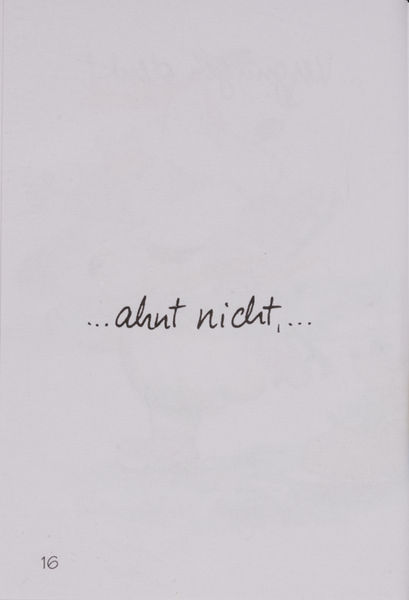 ...ahnt nicht,...
16